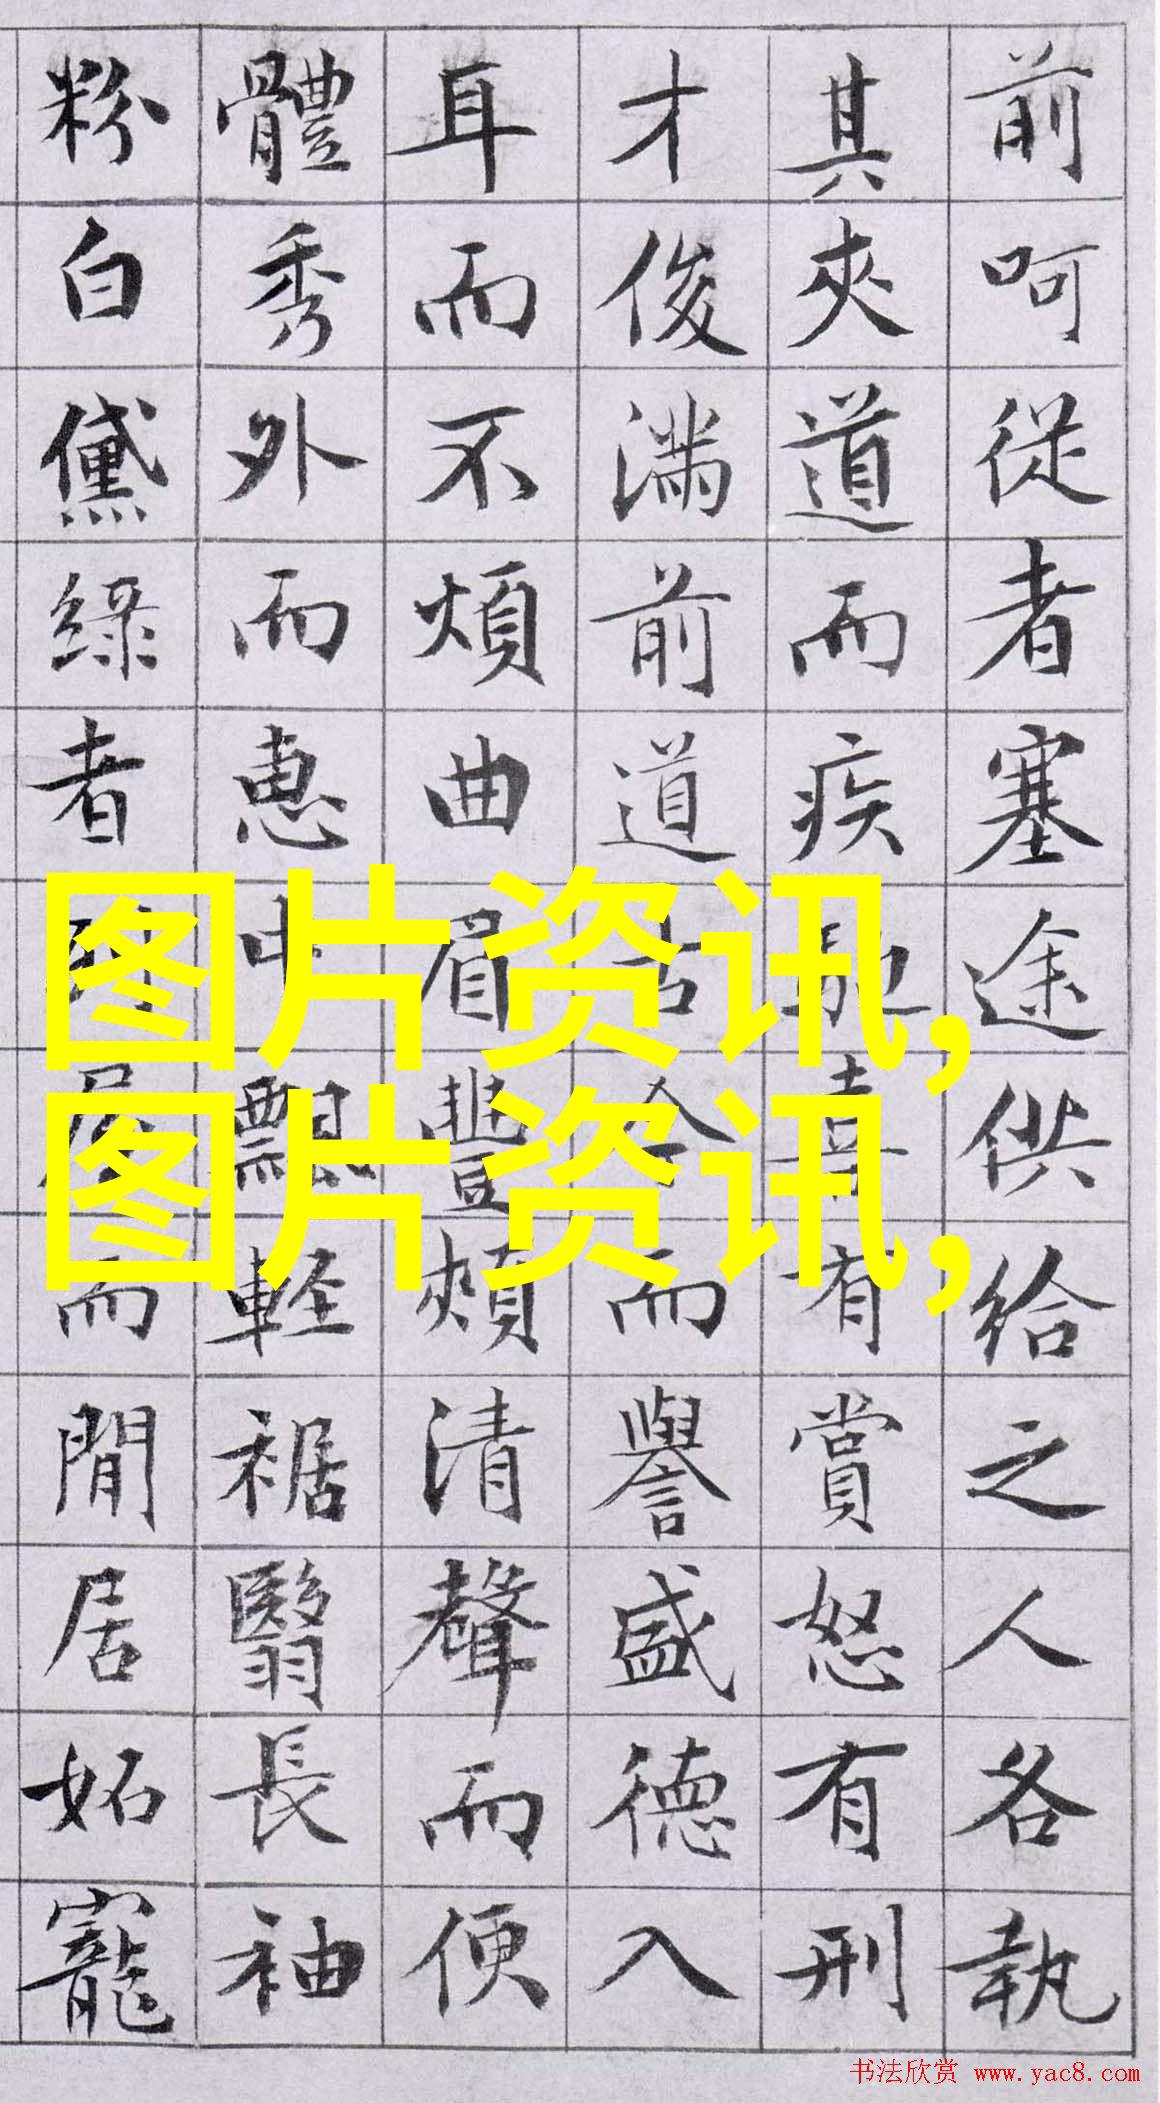 前呵從者塞途供給之人各執
其夾道而疾馳喜有賞怒有刑
才俊滿前道古今而譽盛德入
耳而不煩曲眉豐頰清聲而便
體秀外而惠中飄輕裾翳長袖
粉白黛綠者列屋而閒居妬寵
图片资讯,
图片资讯,
书法欣赏 www.yac8.com